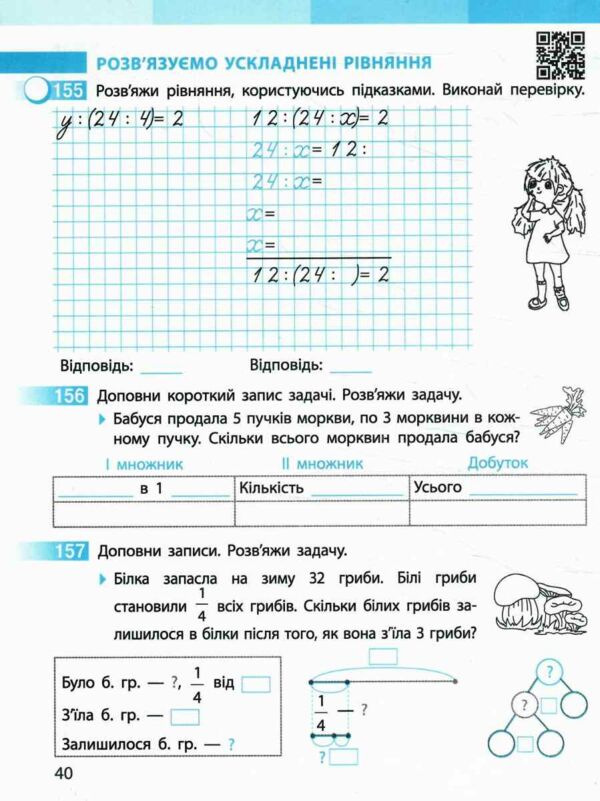 РОЗВ'ЯЗУЄМО УСКЛАДНЕНІ РІВНЯННЯ
155 Розв'яжи рівняння, користуючись підказками. Виконай перевірку.
y : (24 : 4) = 2
12 : (24 : x) = 2
24 : x = 12 :
24 : x =
x =
x =
12 : (24 : ) = 2
Відповідь: ____ Відповідь: ____
156 Доповни короткий запис задачі. Розв'яжи задачу.
Бабуся продала 5 пучків моркви, по 3 морквини в кож-
ному пучку. Скільки всього морквин продала бабуся?
І множник ІІ множник Добуток
____ в 1 ____ Кількість ____ Усього ____
157 Доповни записи. Розв'яжи задачу.
Білка запасла на зиму 32 гриби. Білі гриби
становили 1/4 всіх грибів. Скільки білих грибів за-
лишилося в білки після того, як вона з'їла 3 гриби?
Було б. гр. — ?, 1/4 від
З'їла б. гр. —
Залишилося б. гр. — ?
1/4 — ?
?
?
?
40